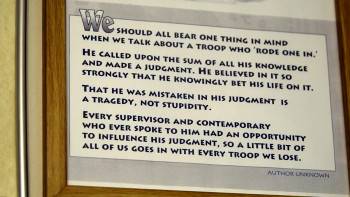 We SHOULD ALL BEAR ONE THING IN MIND
WHEN WE TALK ABOUT A TROOP WHO 'RODE ONE IN.'
HE CALLED UPON THE SUM OF ALL HIS KNOWLEDGE
AND MADE A JUDGMENT. HE BELIEVED IN IT SO
STRONGLY THAT HE KNOWINGLY BET HIS LIFE ON IT.
THAT HE WAS MISTAKEN IN HIS JUDGMENT IS
A TRAGEDY, NOT STUPIDITY.
EVERY SUPERVISOR AND CONTEMPORARY
WHO EVER SPOKE TO HIM HAD AN OPPORTUNITY
TO INFLUENCE HIS JUDGMENT, SO A LITTLE BIT OF
ALL OF US GOES IN WITH EVERY TROOP WE LOSE.
AUTHOR UNKNOWN